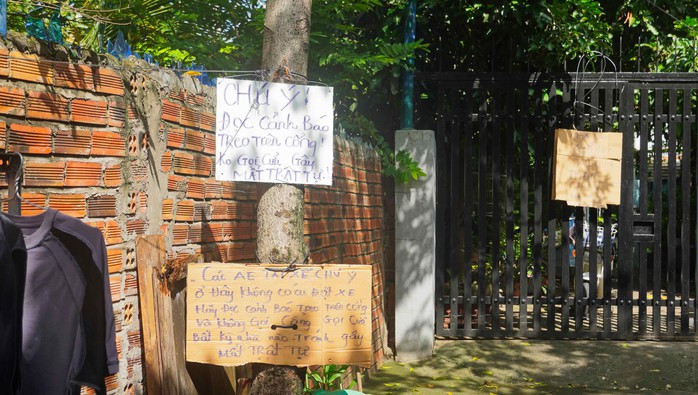 CHÚ Ý!
ĐỌC CẢNH BÁO
TREO TRÊN CỔNG!
KO GỌI CỬA GÂY
MẤT TRẬT TỰ!
CÁC AE TÀI XẾ CHÚ Ý
Ở ĐÂY KHÔNG CÓ AI ĐẶT XE
HÃY ĐỌC CẢNH BÁO TREO TRÊN CỔNG
VÀ KHÔNG GỌI CỔNG GỌI CỬA
BẤT KỲ NHÀ NÀO TRÁNH GÂY
MẤT TRẬT TỰ